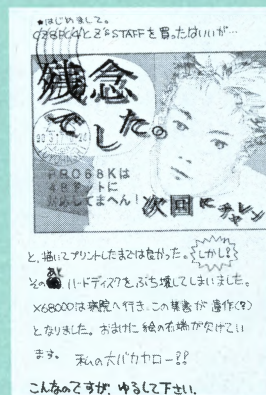 ●はじめまして。
CZ8PC4とZ's STAFFを買ったはいいが…
残念
でした。
PRO68Kは
48ドットに
対応してまへん!
次回にチャレンジ
と、描いてプリントしたまではなかった。しかし!
その あと ハードディスクをぶち壊してしまいました。
X68000は病院へ行き、この葉書が遺作(?)
となりました。おまけに絵の右端が欠けてい
ます。 私の大バカヤロー!!
こんなのですが、ゆるして下さい。